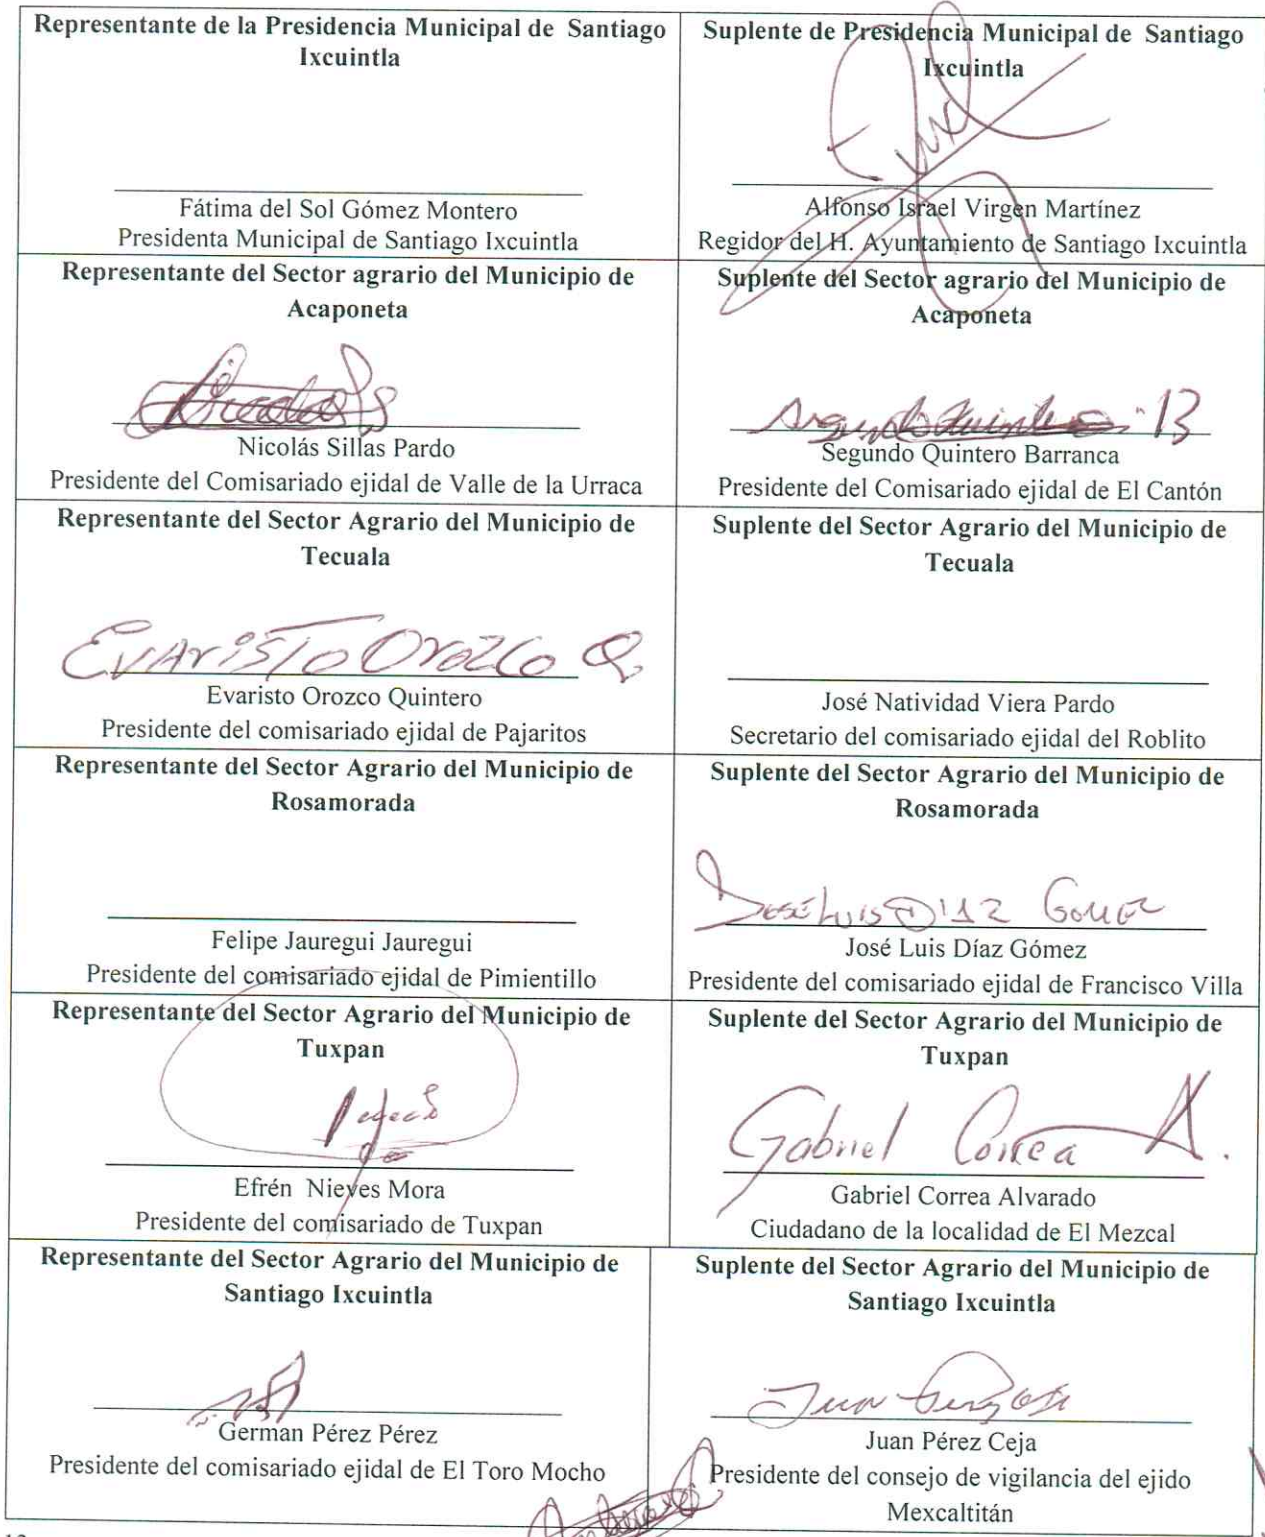 Representante de la Presidencia Municipal de Santiago
Ixcuintla
Fátima del Sol Gómez Montero
Presidenta Municipal de Santiago Ixcuintla
Suplente de Presidencia Municipal de Santiago
Ixcuintla
Alfonso Israel Virgen Martínez
Regidor del H. Ayuntamiento de Santiago Ixcuintla
Representante del Sector agrario del Municipio de
Acaponeta
Nicolás Sillas Pardo
Presidente del Comisariado ejidal de Valle de la Urraca
Suplente del Sector agrario del Municipio de
Acaponeta
Segundo Quintero Barranca
Presidente del Comisariado ejidal de El Cantón
Representante del Sector Agrario del Municipio de
Tecuala
Evaristo Orozco Q
Evaristo Orozco Quintero
Presidente del comisariado ejidal de Pajaritos
Suplente del Sector Agrario del Municipio de
Tecuala
José Natividad Viera Pardo
Secretario del comisariado ejidal del Roblito
Representante del Sector Agrario del Municipio de
Rosamorada
Felipe Jauregui Jauregui
Presidente del comisariado ejidal de Pimientillo
Suplente del Sector Agrario del Municipio de
Rosamorada
José Luis Díaz Gomez
José Luis Díaz Gómez
Presidente del comisariado ejidal de Francisco Villa
Representante del Sector Agrario del Municipio de
Tuxpan
Efrén Nieves Mora
Presidente del comisariado de Tuxpan
Suplente del Sector Agrario del Municipio de
Tuxpan
Gabriel Correa A.
Gabriel Correa Alvarado
Ciudadano de la localidad de El Mezcal
Representante del Sector Agrario del Municipio de
Santiago Ixcuintla
German Pérez Pérez
Presidente del comisariado ejidal de El Toro Mocho
Suplente del Sector Agrario del Municipio de
Santiago Ixcuintla
Juan Pérez Ceja
Presidente del consejo de vigilancia del ejido
Mexcaltitán